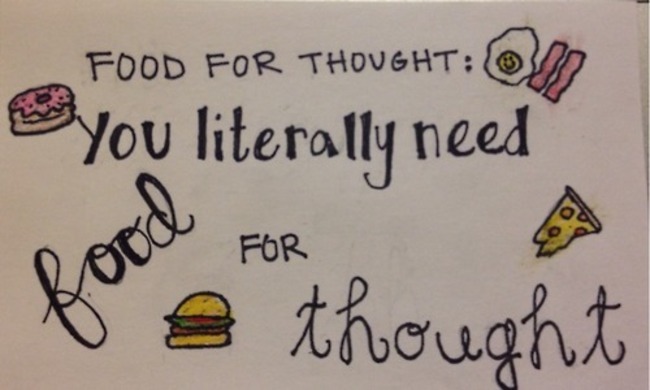 FOOD FOR THOUGHT:
You literally need
food
FOR
thought